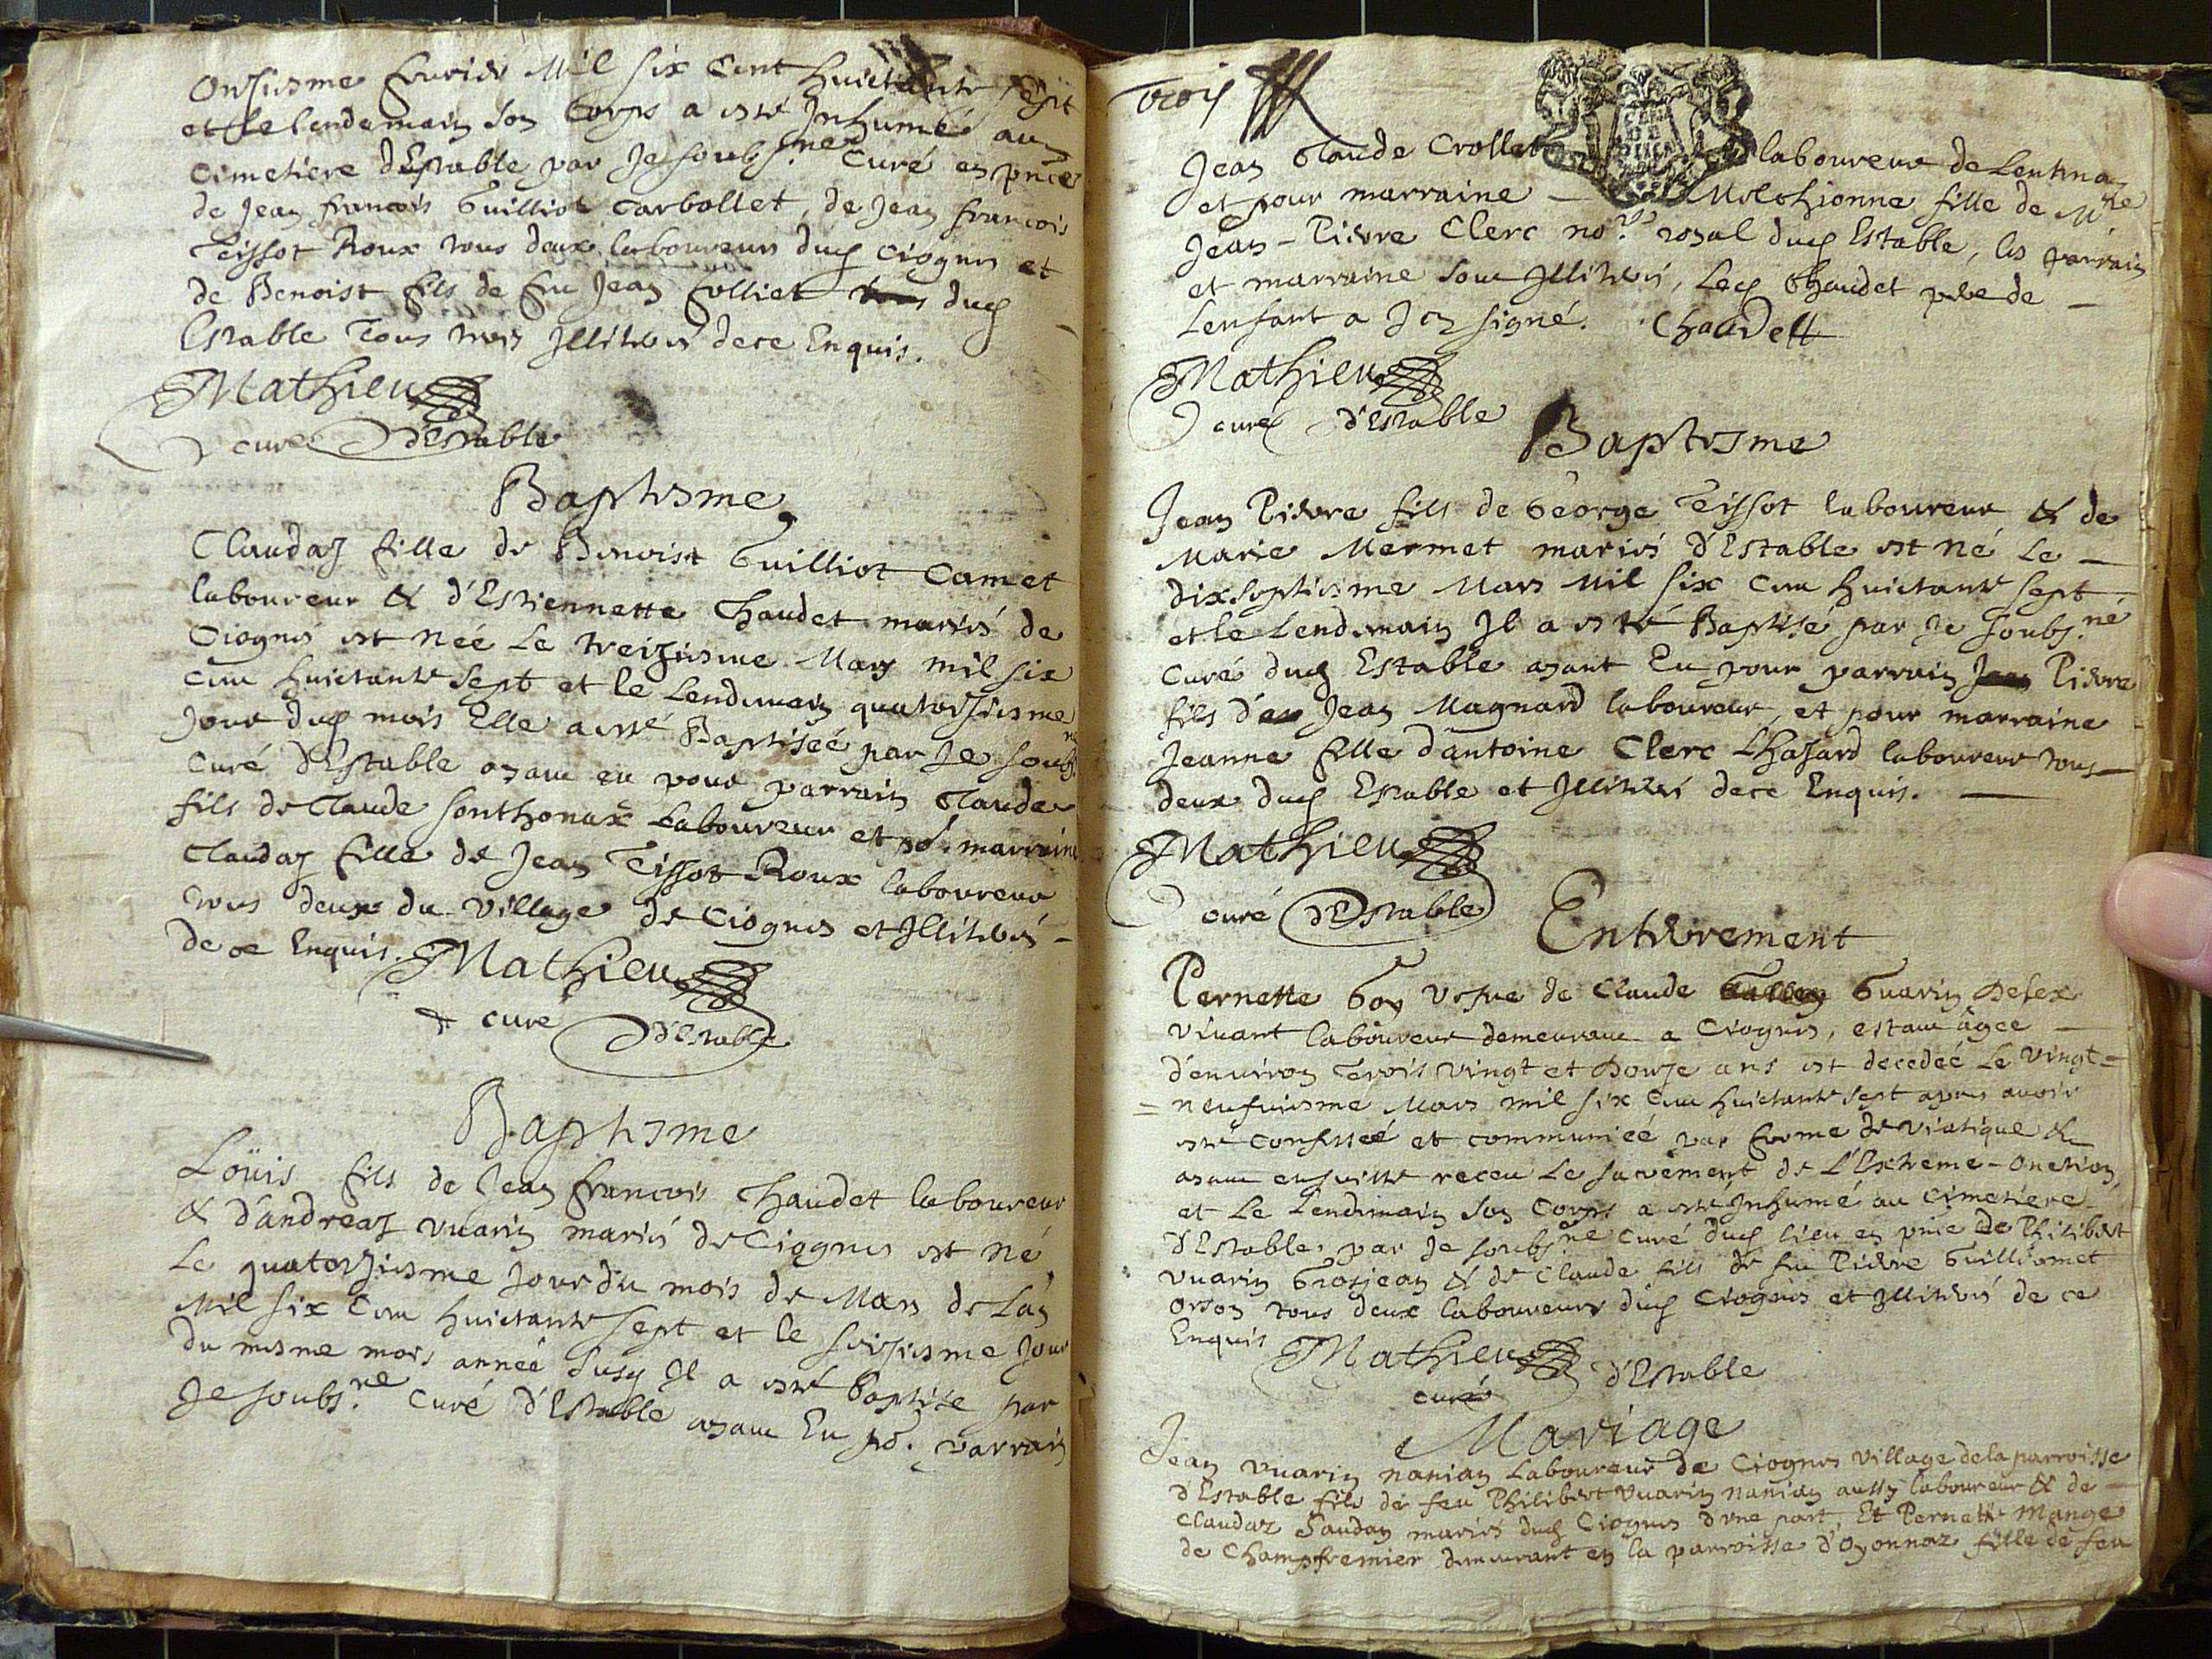 onziesme feuvrier Mil six cent huictante sept
et le lendemain son corps a esté Inhumé au
cimetiere d'Estable par Je soubs.né Curé en pnce
de Jean francois Guilliot Carbollet, de Jean francois
Teissot Roux tous deux laboureurs dud Ciognes et
de Benoist fils de feu Jean folliet dud
Estable Tous trois Illiterés de ce Enquis.
Mathieu
curé d'Estable
Baptesme
Claudaz fille de Benoist Guilliot Camet
laboureur & d'Estiennette Chaudet mariés de
Ciognes est née Le treiziesme Mars mil six
cent huictante sept et le Lendemain quatorziesme
Jour dud mois Elle a esté Baptiseé par Je soubs.né
Curé d'Estable ayant eu pour parrain Claude
fils de Claude Sonthonax Laboureur et po.r marraine
Claudaz fille de Jean Teissot Roux laboureur
tous deux du Village de Ciognes et Illiterés -
de ce Enquis. Mathieu
curé
d'Estable
Baptesme
Loüis fils de Jean francois Chaudet laboureur
& d'andreaz vuarin mariés de Ciognes est né
Le quatorziesme Jour du mois de Mars de Lan
Mil six Cent huictante sept et le seiziesme Jour
du mesme mois année susd Il a esté Baptise par
Je soubs.né Curé d'Estable ayant Eu po.r parrain
trois
Jean Claude Crollet laboureur de Lentena
et pour marraine - Melchionne fille de M.re
Jean-Pierre Clerc no.re royal dud Estable, les parrain
et marraine sont Illiterés, Led Chaudet pere de -
Lenfant a Icy signé. Chaudett
Mathieu
curé d'Estable
Baptesme
Jean Pierre fils de George Teissot laboureur & de
Marie Mermet mariés d'Estable est né Le -
dixseptiesme Mars Mil six Cent huictante sept
et le Lendemain Il a esté Baptisé par Je soubs.né
Curé dud Estable ayant Eu pour parrain Jean Pierre
fils d'eu Jean Magnard laboureur, et pour marraine
Jeanne fille dantoine Clerc Lhasard laboureur tous -
deux dud Estable et Illiterés de ce Enquis. -
Mathieu
curé d'Estable
Enterrement
Pernette Goy Vefve de Claude Guarin
vivant laboureur demeurant a Ciognes, estant âgée -
d'environ Trois vingt et Douze ans est decedeé Le vingt=
=neufviesme Mars mil six cent huictante sept apres avoir
esté Confesseé et communieé par forme de viatique &
ayant ensuitte receu Le sacrement de L'Extreme-onction,
et Le Lendemain son Corps a esté Inhumé au Cimetiere
d'Estable, par Je soubs.né Curé dud lieu en pnce de Philibert
vuarin Grosjean & de Claude fils de feu Pierre Guillermet
orson tous deux laboureurs dud Ciognes et Illiterés de ce
Enquis Mathieu d'Estable
curé
Mariage
Jean vuarin nanian Laboureur de Ciognes village de la parroisse
d'Estable fils de feu Philibert vuarin nanian aussy laboureur & de -
Claudaz mariés dud Ciognes d'une part, Et Pernette Mange
de Champfremier demeurant en la parroisse d'Oyonnaz fille de feu